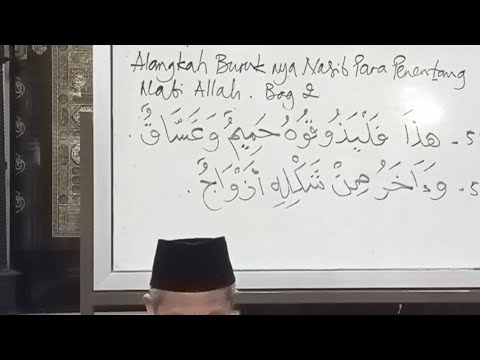 Alangkah Buruk nya Nasib Para Penentang
Nabi Allah. Bag 2
5 - هَذَا فَلْيَذُوقُوهُ حَمِيمٌ وَغَسَّاقٌ .
5 - وَءَاخَرُ مِنْ شَكْلِهِ أَزْوَاجٌ .